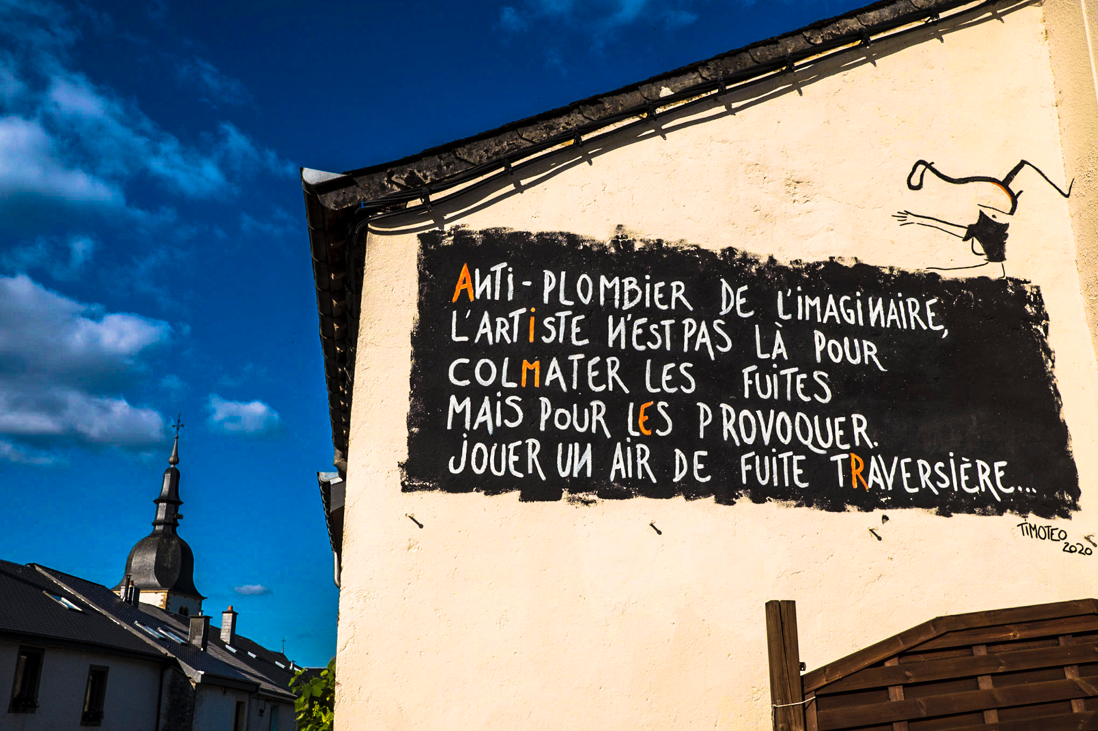 ANTI-PLOMBIER DE L'IMAGINAIRE,
L'ARTISTE N'EST PAS LÀ POUR
COLMATER LES FUITES
MAIS POUR LES PROVOQUER.
JOUER UN AIR DE FUITE TRAVERSIÈRE...
TIMOTEO
2020